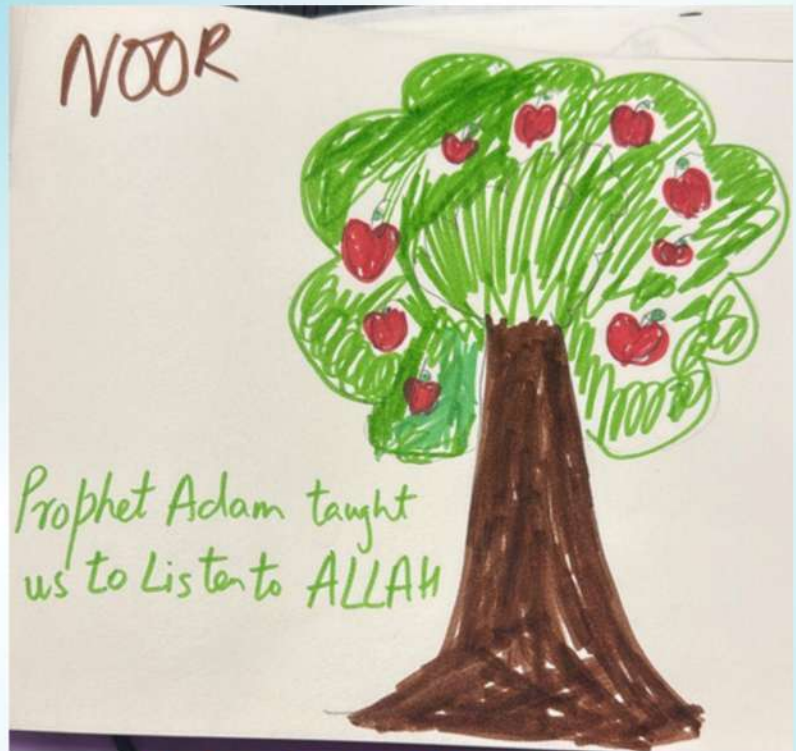 NOOR
Prophet Adam taught
us to Listen to ALLAH